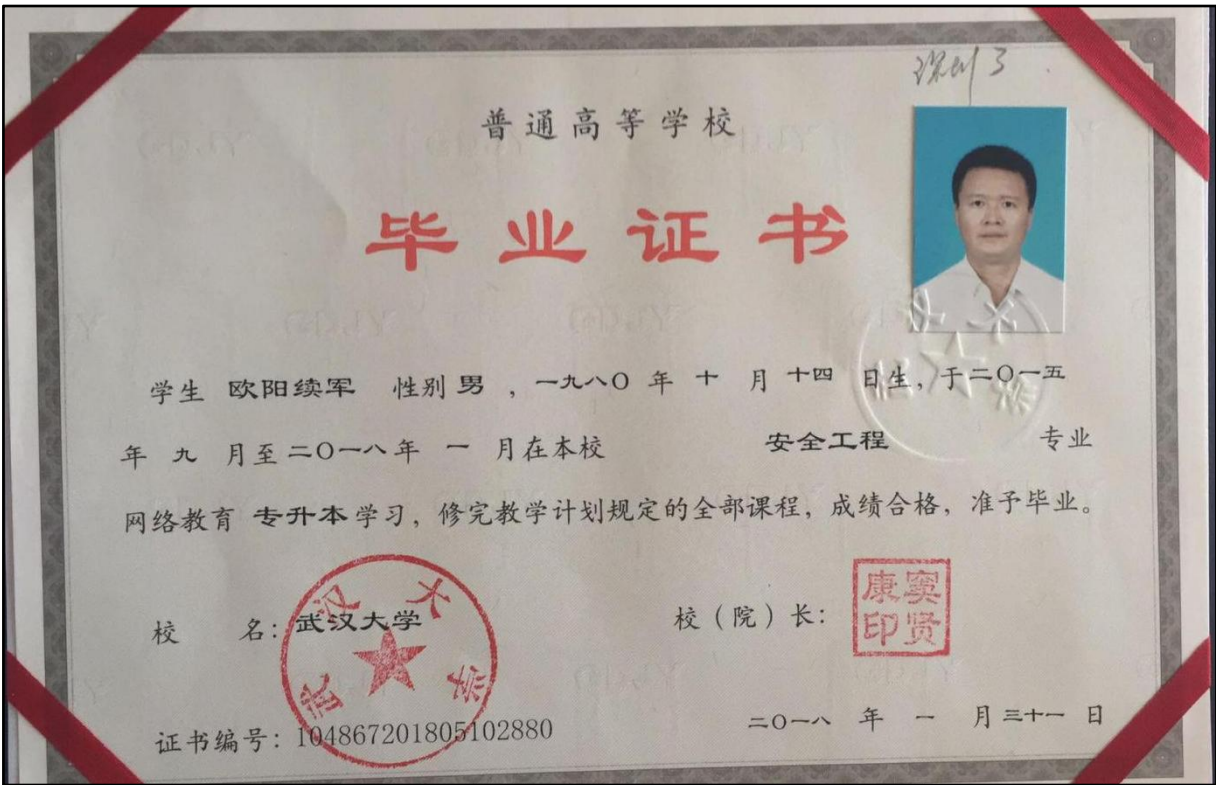 普通高等学校
毕业证书
学生 欧阳续军 性别 男 ，一九八〇 年 十 月 十四 日生，于二〇一五
年 九 月至二〇一八年 一 月在本校 安全工程 专业
网络教育 专升本 学习，修完教学计划规定的全部课程，成绩合格，准予毕业。
校 名：武汉大学
武汉大学
校（院）长：
窦贤康印
证书编号：104867201805102880
二〇一八 年 一 月 三十一 日